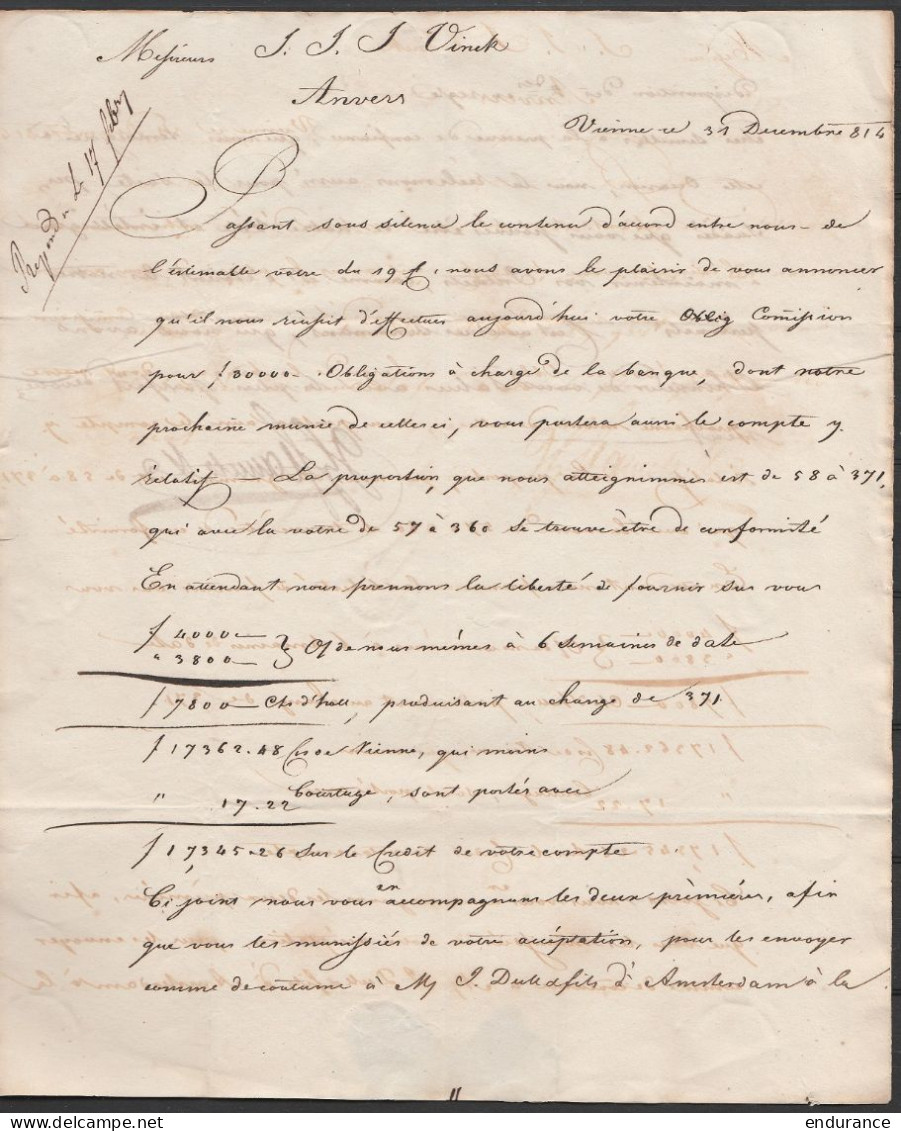 Messieurs J. J. J Vinck
Anvers
Vienne ce 31 Decembre 814
Repondu Le 17 febry
Passant sous silence le contenu d'acord entre nous de
l'éstimable votre du 19 , nous avons le plaisir de vous annoncer
qu'il nous réussit d'effectuer aujourd'hui votre Comission
pour f 30000 Obligations à charge de la banque, dont notre
prochaine munie de celles ci, vous portera aussi le compte y
rélatif — La proportion, que nous atteignimmes est de 58 à 371,
qui avec la votre de 57 à 360 se trouve être de conformité
En attendant nous prennons la liberté de fournir sur vous
f 4000 —
" 3800 — } O/ de nous mémes à 6 Semaines de date
f 7800 — Ct d'holl, produisant au change de 371.
f 17362.48 de Vienne, qui moins
" 17.22 Courtage, sont portés avec
f 17,345.26 Sur le Credit de votre compte
Ci joint nous vous en accompagnons les deux prémiéres, afin
que vous les munissiés de votre acéptation, pour les envoyer
comme de coutume à M J. Dull & fils d'Amsterdam à la
endurance